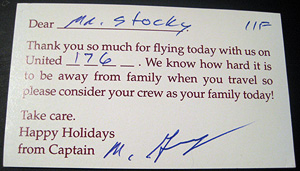 Dear Mr. Stocky 11F
Thank you so much for flying today with us on
United 176. We know how hard it is
to be away from family when you travel so
please consider your crew as your family today!
Take care.
Happy Holidays
from Captain M.